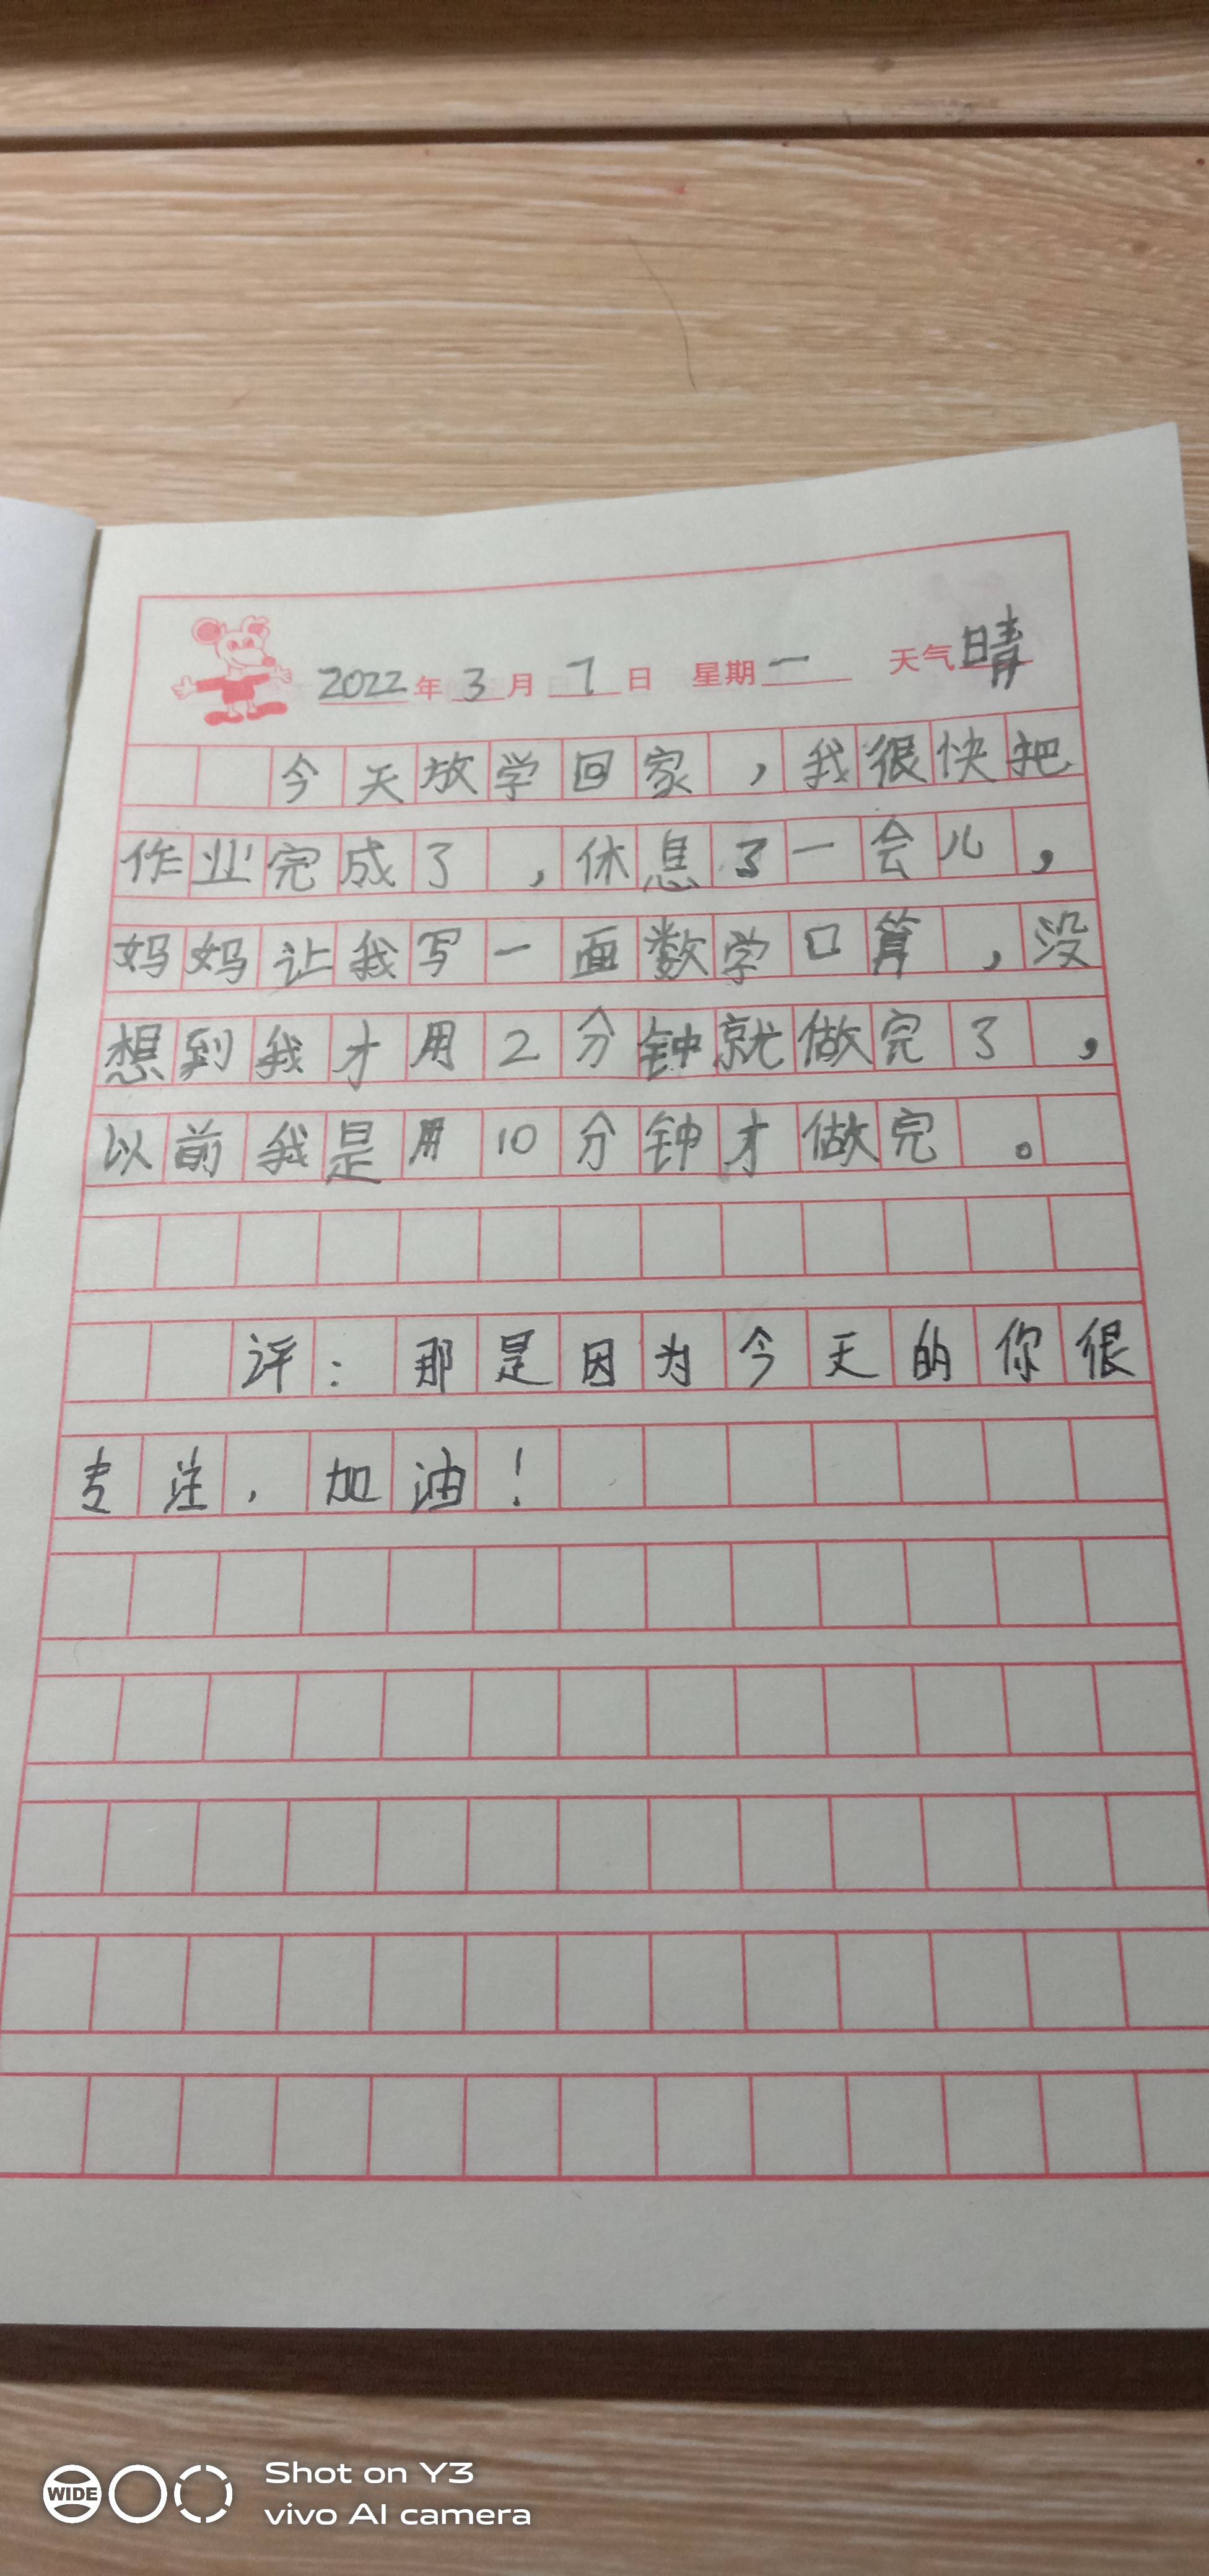 2022年3月7日 星期一 天气晴
今天放学回家，我很快把
作业完成了，休息了一会儿，
妈妈让我写一面数学口算，没
想到我才用2分钟就做完了，
以前我是用10分钟才做完。
评：那是因为今天的你很
专注，加油！
WIDE
Shot on Y3
vivo AI camera